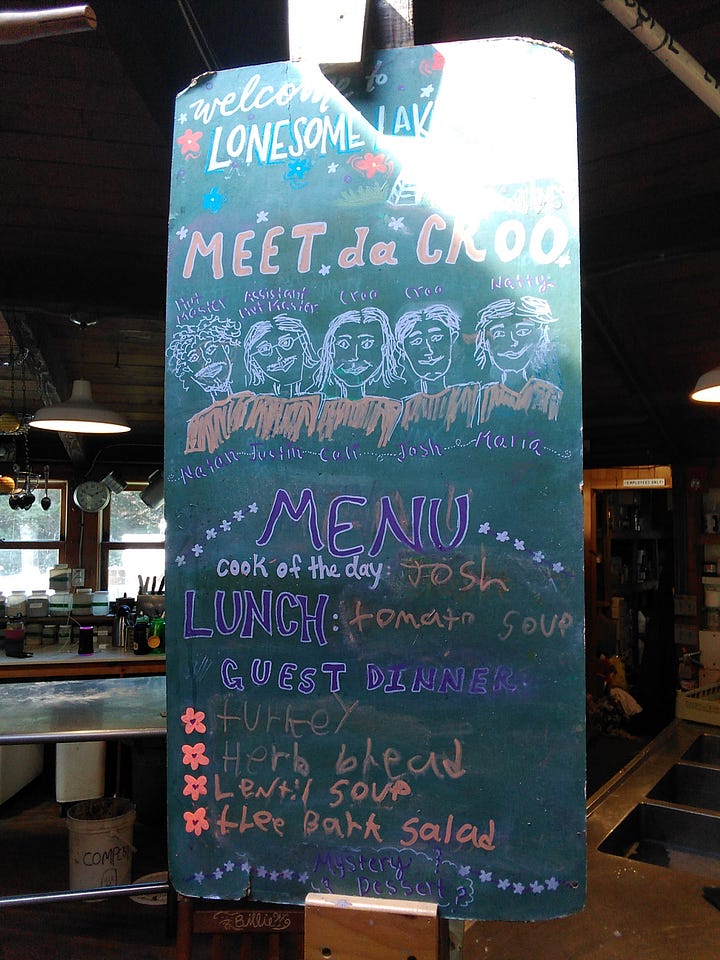 welcome to
LONESOME LAK
MEET da CROO
Hut Master
Assistant Hut Master
Croo
Croo
Natty
Justin
Josh
Maria
MENU
cook of the day: Josh
LUNCH: tomato soup
GUEST DINNER
turkey
Herb bread
Lentil soup
tree Bark salad
Mystery ?
Dessert ?
EMPLOYEES ONLY!
COMPOST
Billie